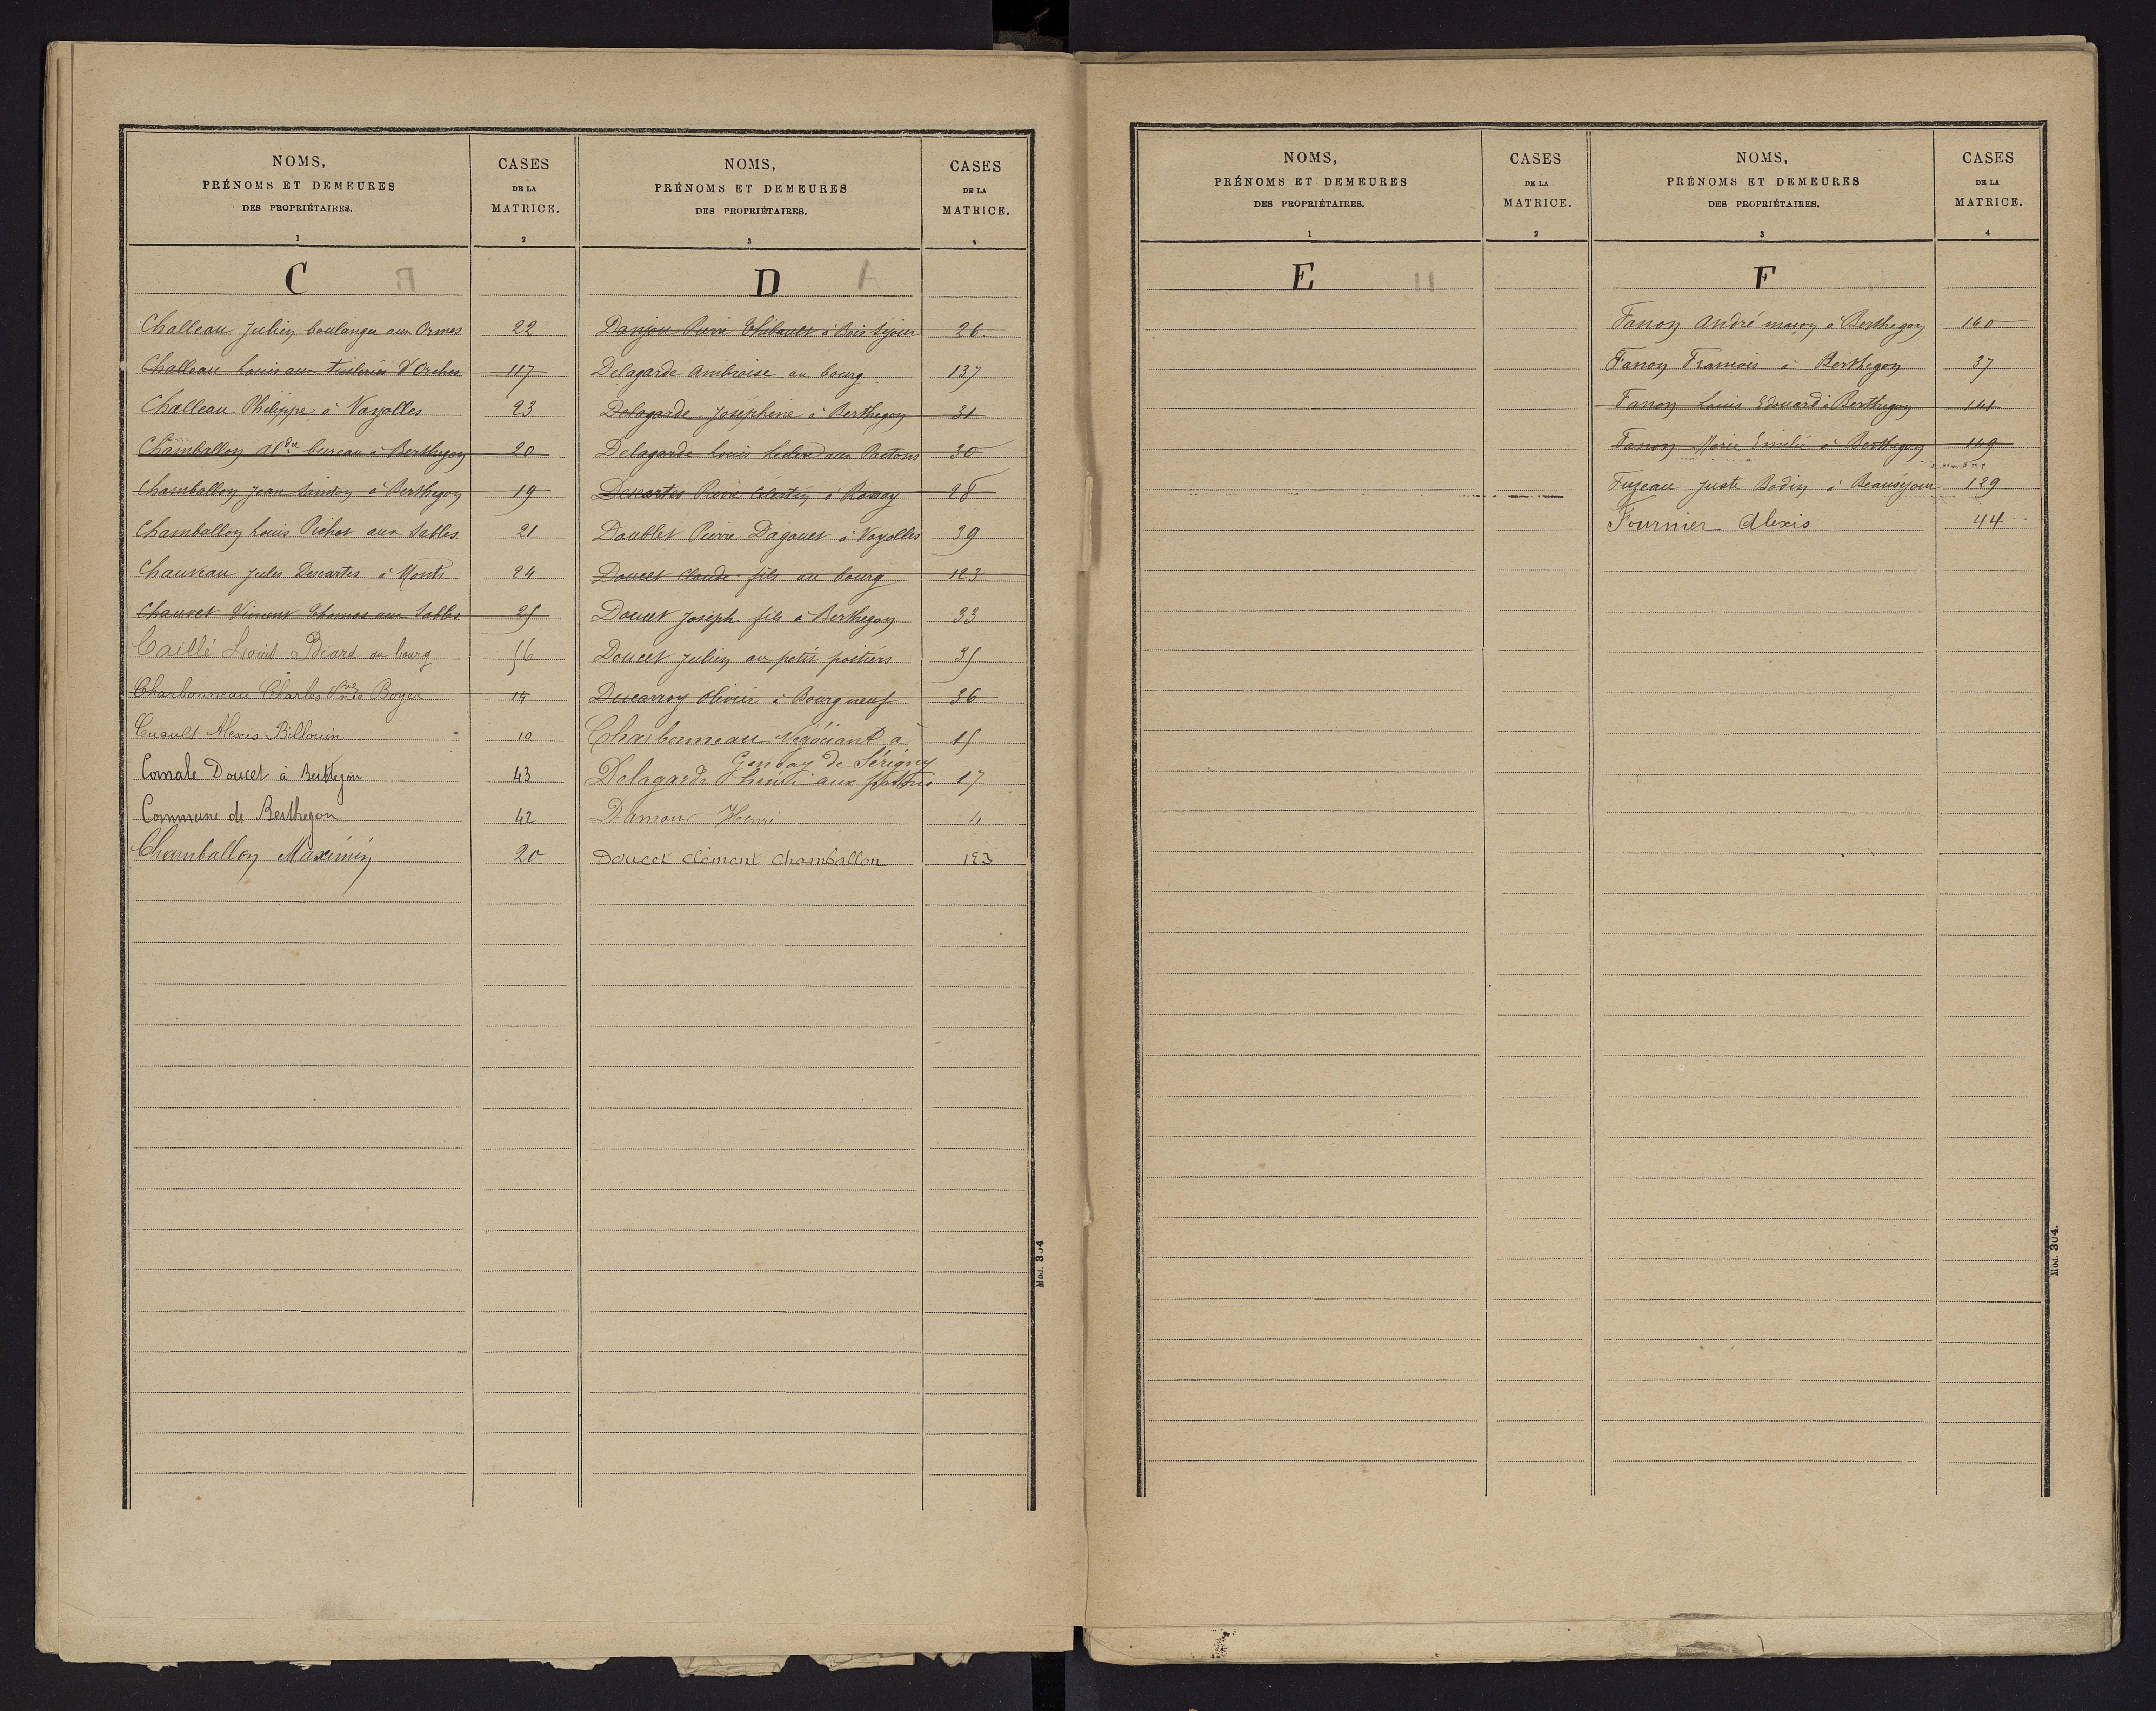 NOMS,
PRÉNOMS ET DEMEURES
DES PROPRIÉTAIRES.
1
CASES
DE LA
MATRICE.
2
NOMS,
PRÉNOMS ET DEMEURES
DES PROPRIÉTAIRES.
3
CASES
DE LA
MATRICE.
4
C
Challeau Julien boulanger aux Ormes 22
Challeau Louis aux tuileries d'Orches 117
Challeau Philippe à Vayolles 23
Chamballon bureau à Berthegon 20
Chamballon Jean Sandon à Berthegon 19
Chamballon Louis Pichot aux Sables 21
Chauveau Jules Descartes à Monts 24
Chauvet Vincent Thomas aux Sables 25
Caillé Louis Biard au bourg 56
Charbonneau Charles Vve née Boyer 14
Cuault Alexis Billouin 10
Doucet à Berthegon 43
Commune de Berthegon 42
Chamballon Maximin 20
D
Danjou Pierre Thibault à Bois Séjour 26
Delagarde Ambroise au bourg 137
Delagarde Josephine à Berthegon 31
Delagarde Louis aux Pactons 30
Descartes Pierre Célestin à Rossay 28
Doublet Pierre Dagouet à Vayolles 39
Doucet Claude fils au bourg 123
Doucet Joseph fils à Berthegon 33
Doucet Julien au petit poitiers 35
Ducarroy Olivier à Bourgneuf 36
Charbonneau Négociant à 15
Gençay de Sérigny
Delagarde henri aux 17
Damour Henri 4
Doucet Clément Chamballon 123
Mod. 304
NOMS,
PRÉNOMS ET DEMEURES
DES PROPRIÉTAIRES.
1
CASES
DE LA
MATRICE.
2
NOMS,
PRÉNOMS ET DEMEURES
DES PROPRIÉTAIRES.
3
CASES
DE LA
MATRICE.
4
E
F
Fanon André maçon à Berthegon 140
Fanon François à Berthegon 37
Fanon Louis Edouard à Berthegon 141
Fanon Marie Emelie à Berthegon 149
Fuzeau Juste Bodin à Beauséjour 129
Fournier Alexis 44
Mod. 304.